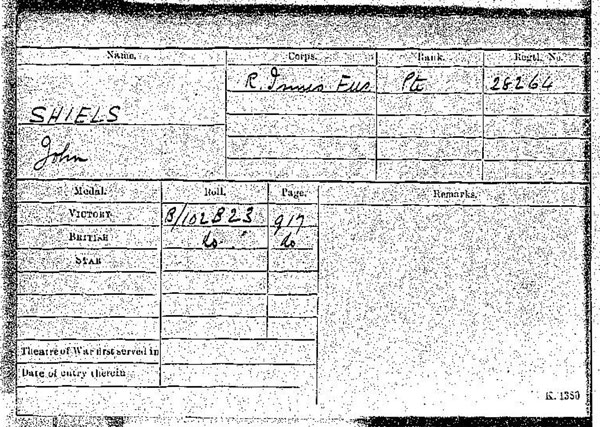 Name. Corps. Rank. Regtl. No.
R. Innis Fus Pte 28264
SHIELS
John
Medal. Roll. Page. Remarks.
VICTORY B/102B23 917
BRITISH do do
STAR
Theatre of War first served in
Date of entry therein
K. 1380